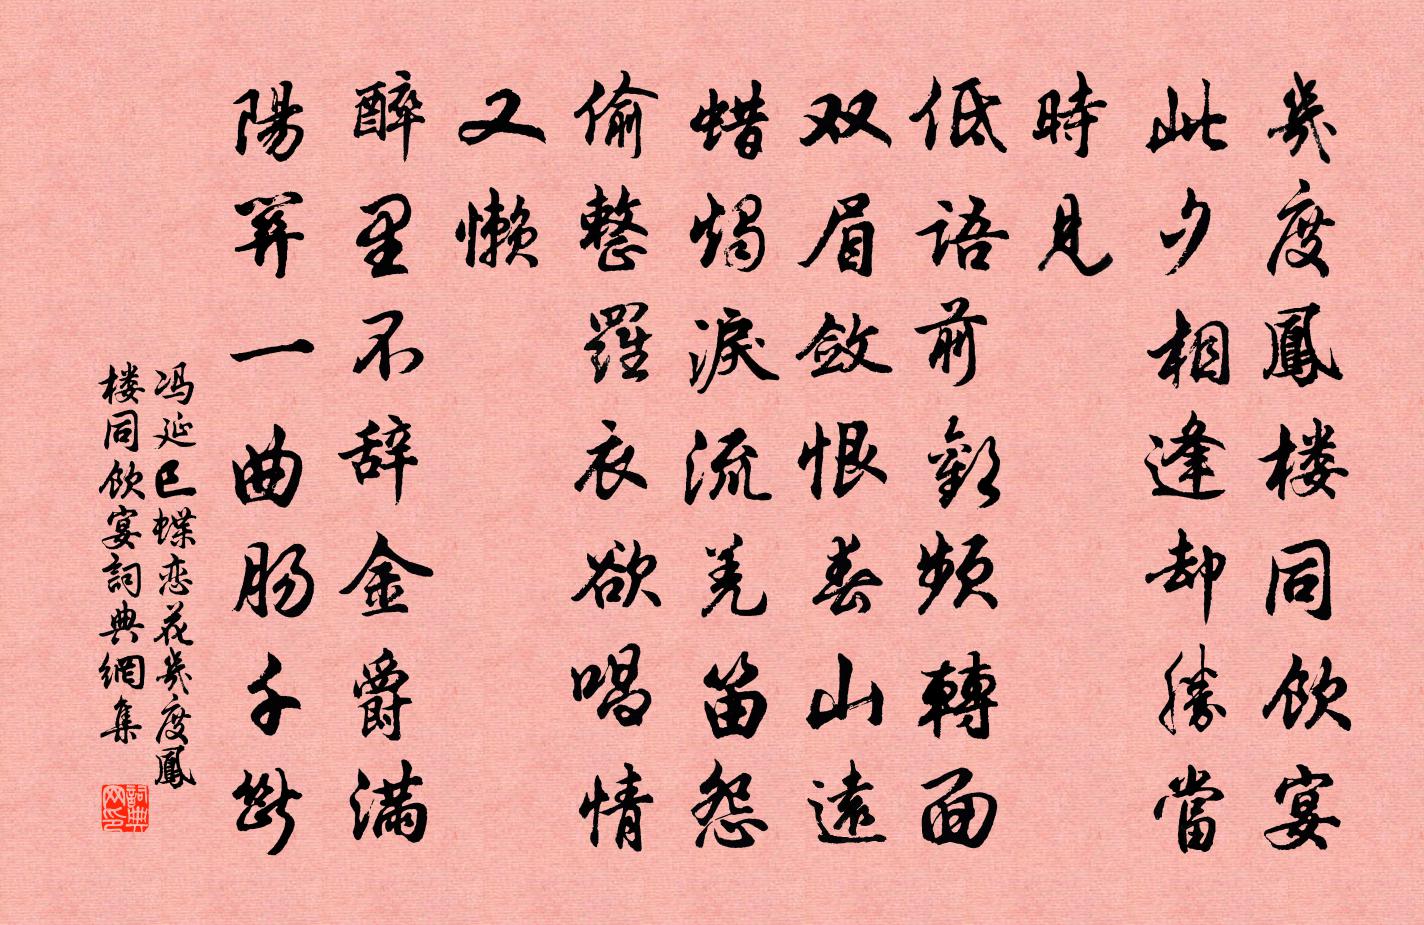 幾度鳳楼同飲宴
此夕相逢却勝當
時見
低語前歡頻轉面
双眉斂恨春山遠
蜡燭淚流羌笛怨
偷整羅衣欲唱情
又懒
醉里不辞金爵满
陽關一曲肠千斷
冯延巳蝶恋花幾度鳳
楼同飲宴詞典網集
詞典网印